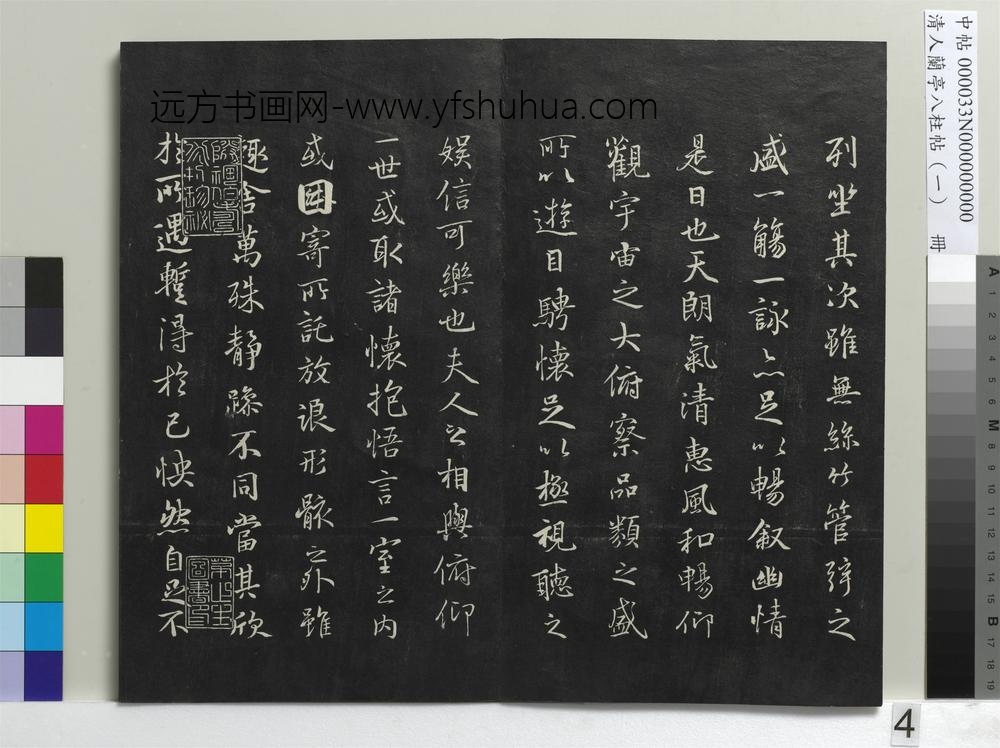 远方书画网-www.yfshuhua.com
中帖 000033N000000000
清人蘭亭八柱帖（一） 冊
列坐其次雖無絲竹管弦之
盛一觴一詠亦足以暢叙幽情
是日也天朗氣清惠風和暢仰
觀宇宙之大俯察品類之盛
所以遊目騁懷足以極視聽之
娛信可樂也夫人之相與俯仰
一世或取諸懷抱悟言一室之內
或因寄所託放浪形骸之外雖
趣舍萬殊靜躁不同當其欣
於所遇暫得於己怏然自足不
A 1 2 3 4 5 6 M 8 9 10 11 12 13 14 15 B 17 18 19
4